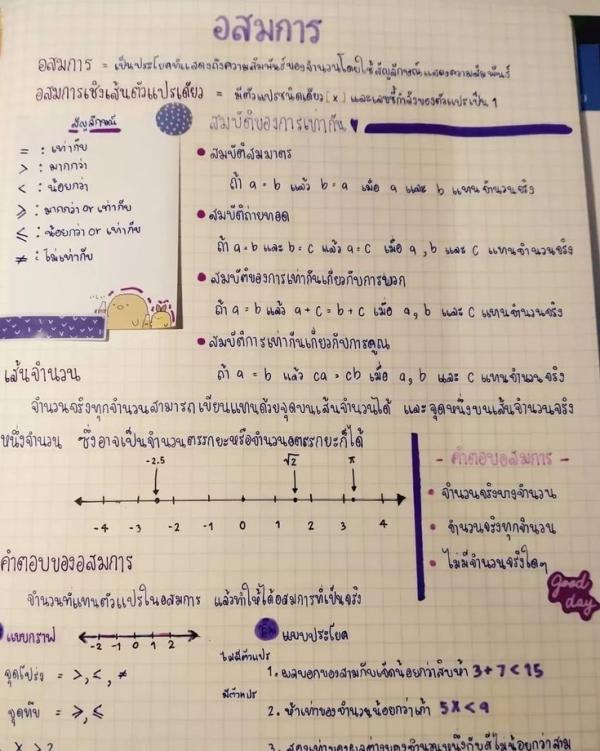 อสมการ
อสมการ = เป็นประโยคที่แสดงถึงความสัมพันธ์ของจำนวนโดยใช้สัญลักษณ์แสดงความสัมพันธ์
อสมการเชิงเส้นตัวแปรเดียว = มีตัวแปรชนิดเดียว [x] และเลขชี้กำลังของตัวแปรเป็น 1
สัญลักษณ์
= : เท่ากับ
> : มากกว่า
< : น้อยกว่า
⩾ : มากกว่า or เท่ากับ
⩽ : น้อยกว่า or เท่ากับ
≠ : ไม่เท่ากับ
สมบัติของการเท่ากัน
• สมบัติสมมาตร
ถ้า a = b แล้ว b = a เมื่อ a และ b แทนจำนวนจริง
• สมบัติถ่ายทอด
ถ้า a = b และ b = c แล้ว a = c เมื่อ a , b และ c แทนจำนวนจริง
• สมบัติของการเท่ากันเกี่ยวกับการบวก
ถ้า a = b แล้ว a + c = b + c เมื่อ a , b และ c แทนจำนวนจริง
• สมบัติการเท่ากันเกี่ยวกับการคูณ
ถ้า a = b แล้ว ca = cb เมื่อ a , b และ c แทนจำนวนจริง
เส้นจำนวน
จำนวนจริงทุกจำนวนสามารถเขียนแทนด้วยจุดบนเส้นจำนวนได้ และจุดหนึ่งบนเส้นจำนวนจริง
หนึ่งจำนวน ซึ่งอาจเป็นจำนวนตรรกยะหรือจำนวนอตรรกยะก็ได้
-2.5 √2 π
-4 -3 -2 -1 0 1 2 3 4
- คำตอบอสมการ -
• จำนวนจริงบางจำนวน
• จำนวนจริงทุกจำนวน
• ไม่มีจำนวนจริงใดๆ
Good day
คำตอบของอสมการ
จำนวนที่แทนตัวแปรในอสมการ แล้วทำให้ได้อสมการที่เป็นจริง
แบบกราฟ
-2 -1 0 1 2
จุดโปร่ง = >, <, ≠
จุดทึบ = ⩾, ⩽
x > 2
Ex แบบประโยค
ไม่มีตัวแปร
1. ผลบวกของสามกับเจ็ดน้อยกว่าสิบห้า 3 + 7 < 15
มีตัวแปร
2. ห้าเท่าของจำนวนน้อยกว่าเก้า 5X < 9
3. สองเท่าของผลต่างของจำนวนหนึ่งกับสี่ไม่น้อยกว่าสาม